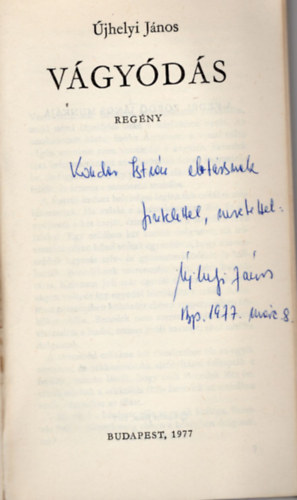 Újhelyi János
VÁGYÓDÁS
REGÉNY
István elvtársnak
tisztelettel, szeretettel:
Újhelyi János
Bp. 1977. márc. 8.
BUDAPEST, 1977